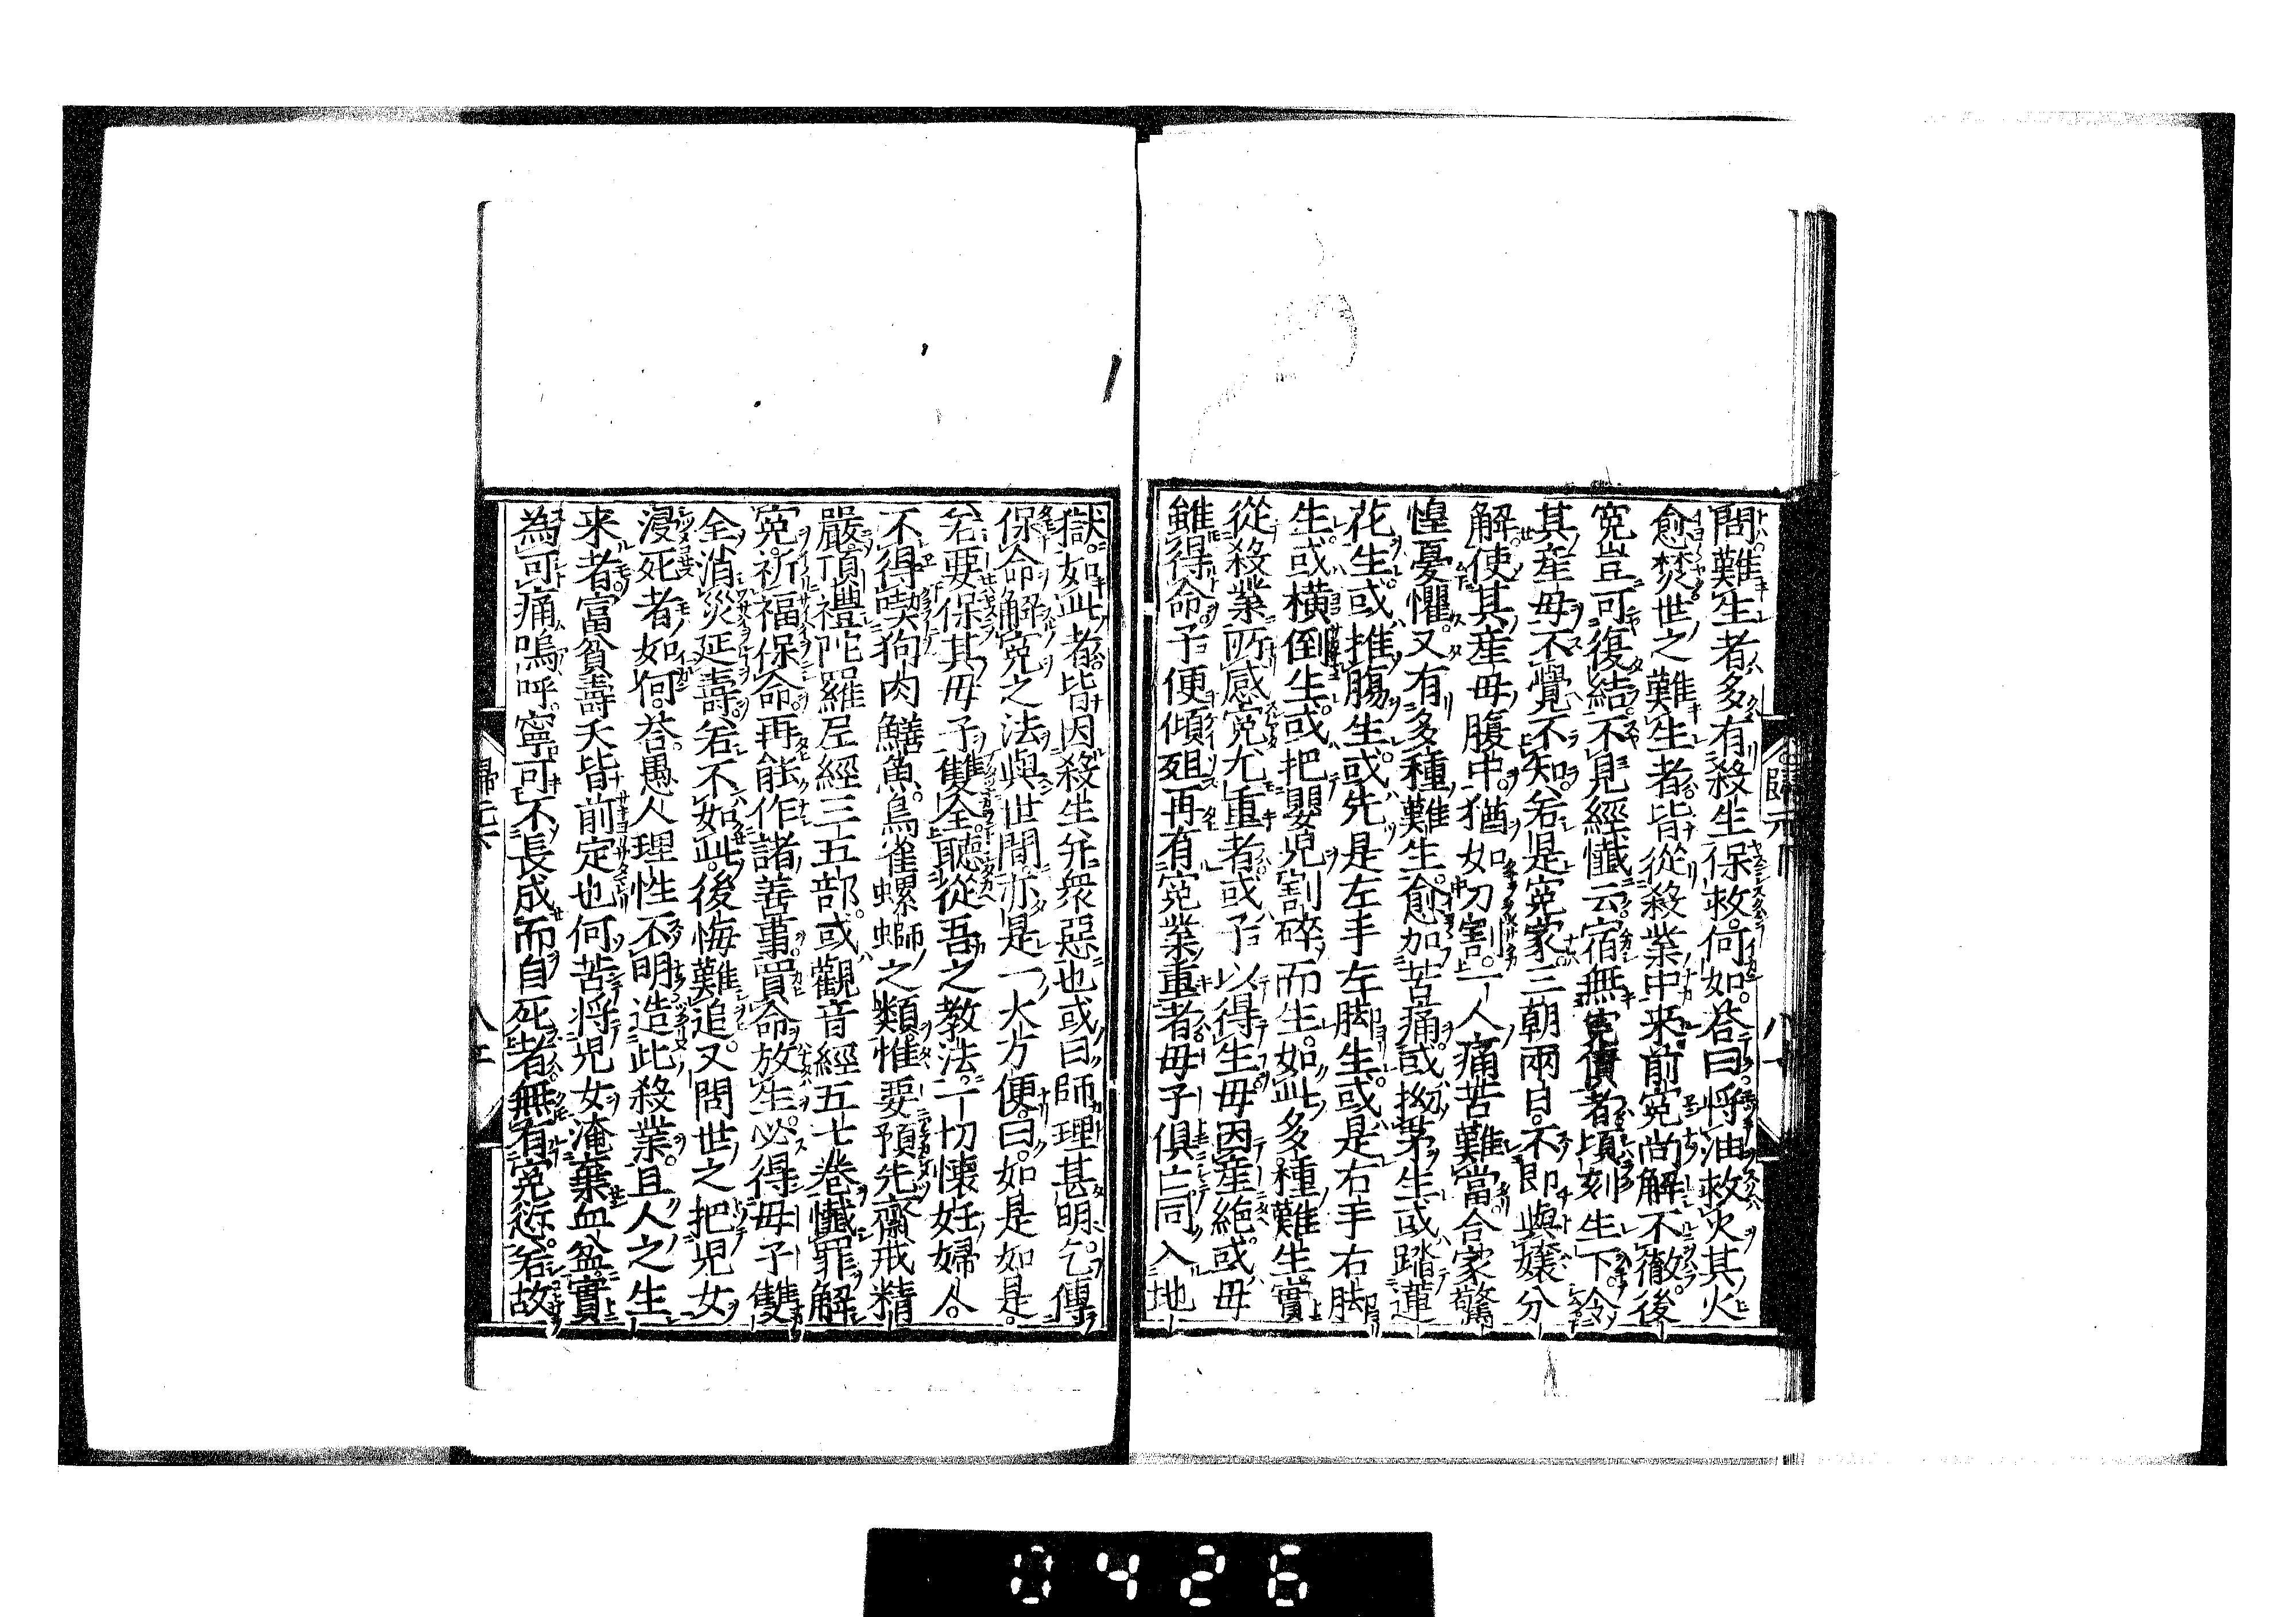 問難生者多有殺生保救。何如。答曰將油救火其火
愈焚世之難生者皆從殺業中来前寃尚解不徹。後
寃豈可復結。不見經懺云宿無寃債者頃刻生下。令
其産母不覺不知。若是寃家三朝兩日。不即與孃分
解。使其産母腹中。猶如刀割。一人痛苦難當合家驚
惶憂懼。又有多種難生。愈加苦痛。或拗笋生或踏蓮
花生。或推腸生。或先是左手左脚生。或是右手右脚
生。或橫倒生。或把嬰兒割碎而生。如此多種難生。實
從殺業所感寃尤重者或子以得生母因産絶。或母
雖得命。子便傾殂再有寃業重者母子俱亡同入地
獄。如此者。皆因殺生并衆惡也或曰師理甚明。乞傳
保命解寃之法與世間亦是一大方便。曰。如是如是。
若要保其母子雙全聽從吾之教法。一切懷妊婦人。
不得喫狗肉鱔魚。鳥雀螺螄之類。惟要預先齋戒精
嚴頂禮陀羅尼經三五部。或觀音經五七卷懺罪解
寃。祈福保命。再能作諸善事。買命放生。必得母子雙
全消災延壽。若不如此。後悔難追。又問世之把兒女
浸死者如何。答。愚人理性不明造此殺業。且人之生
来者富貧壽夭皆前定也何苦將兒女淹棄血盆。實
為可痛嗚呼。寧可不長成而自死者無有寃愆。若故
歸元下
八十
歸元下
0426